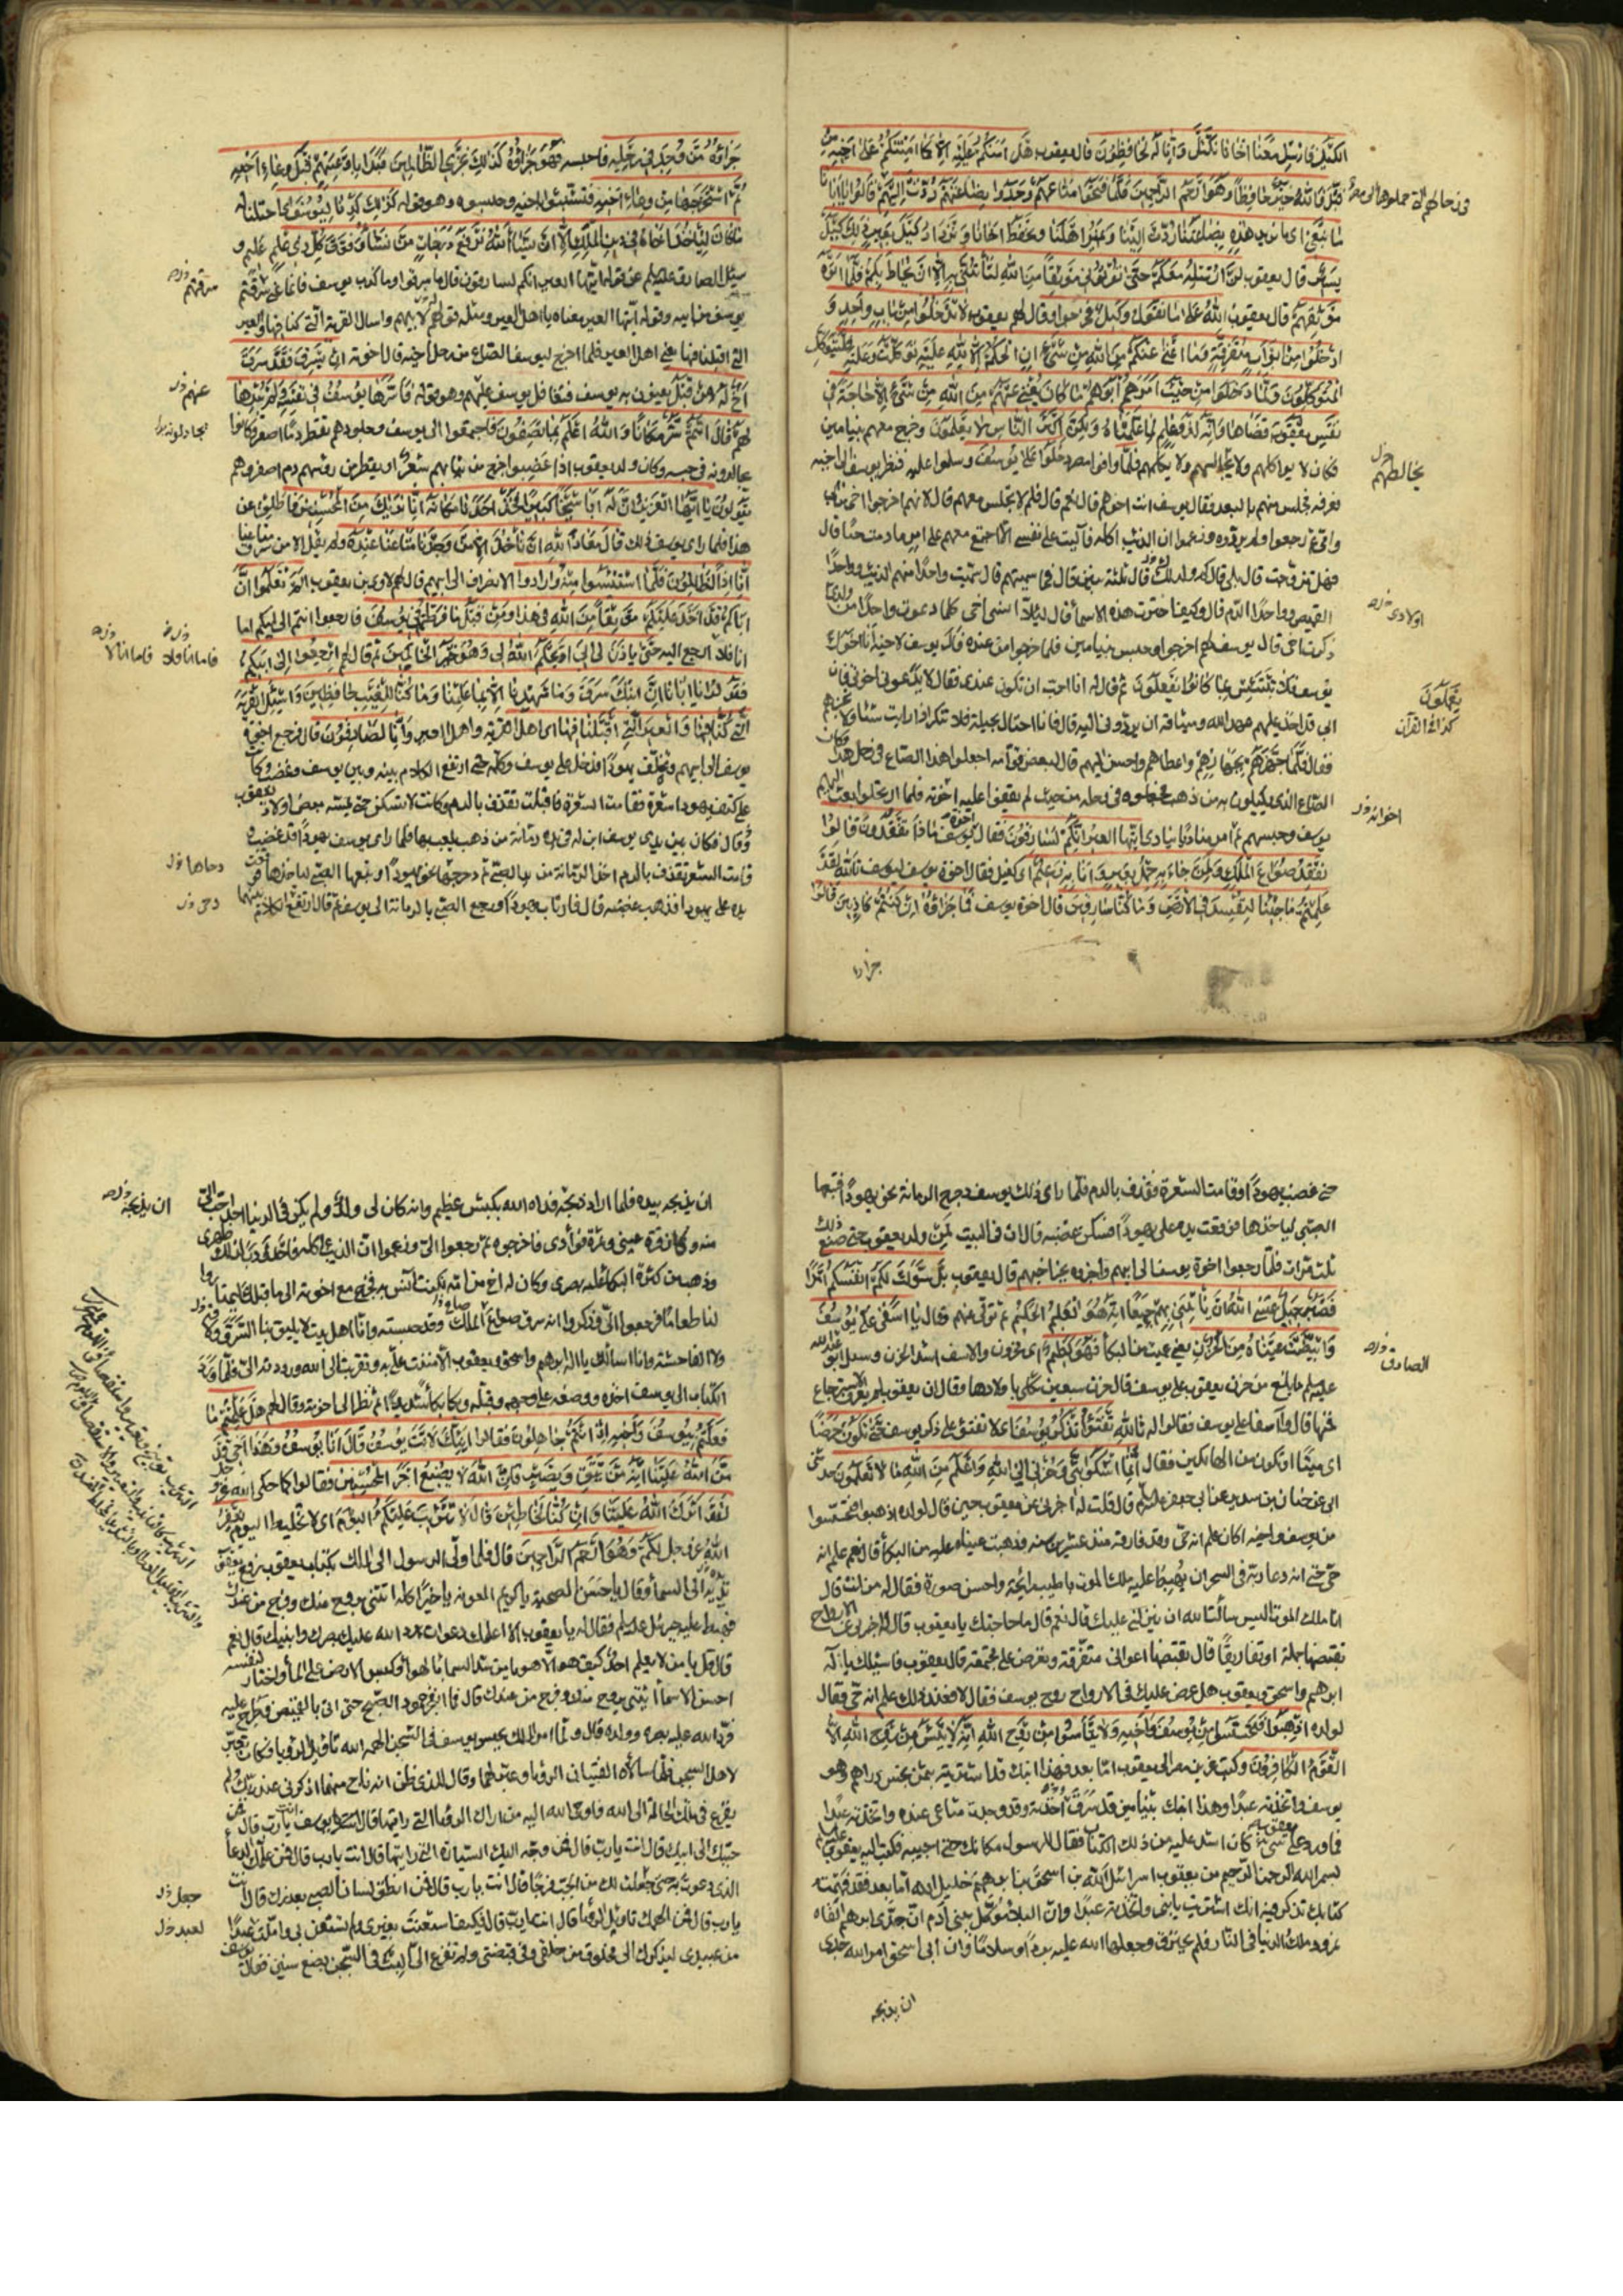 الكيل فارسل معنا اخانا نكتل وانا له لحافظون قال يعقوب هل امنكم عليه الا كما امنتكم على اخيه من
قبل فالله خير حافظا وهو ارحم الراحمين فلما فتحوا متاعهم وجدوا بضاعتهم ردت اليهم قالوا يا ابانا
ما نبغي اي ما نريد هذه بضاعتنا ردت الينا ونمير اهلنا ونحفظ اخانا ونزداد كيل بعير ذلك كيل
يسير قال يعقوب لن ارسله معكم حتى تؤتون موثقا من الله لتأتنني به الا ان يحاط بكم فلما اتوه
موثقهم قال يعقوب الله على ما نقول وكيل فخرجوا وقال لهم يعقوب لا تدخلوا من باب واحد و
ادخلوا من ابواب متفرقة وما اغني عنكم من الله من شيء ان الحكم الا لله عليه توكلت وعليه فليتوكل
المتوكلون ولما دخلوا من حيث امرهم ابوهم ما كان يغني عنهم من الله من شيء الا حاجة في
نفس يعقوب قضاها وانه لذو علم لما علمناه ولكن اكثر الناس لا يعلمون وخرج معهم بنيامين
فكان لا يواكلهم ولا يجالسهم ولا يكلمهم فلما وافوا مصر دخلوا على يوسف وسلموا عليه فنظر يوسف الى اخيه
فعرفه فجلس منهم بالبعد فقال يوسف انت اخوهم قال نعم قال فلم لا تجلس معهم قال لانهم اخرجوا اخي من ابي
وامي ثم رجعوا ولم يردوه وزعموا ان الذئب اكله فآليت على نفسي الا اجتمع معهم على امر ما دمت حيا قال
فهل تزوجت قال بلى قال فولد لك ولد قال ثلثة بنين قال فما سميتهم قال سميت واحدا منهم الذئب وواحدا
القميص وواحدا الدم قال وكيف اخترت هذه الاسماء قال لئلا انسى اخي كلما دعوت واحدا من ولدي
ذكرت اخي قال يوسف لهم اخرجوا وحبس بنيامين فلما خرجوا من عنده قال يوسف لاخيه انا اخوك
يوسف فلا تبتئس بما كانوا يفعلون ثم قال له انا احب ان تكون عندي فقال لا يدعوني اخوتي فان
ابي قد اخذ عليهم عهد الله وميثاقه ان يردوني اليه قال فانا احتال بحيلة فلا تنكر اذا رايت شيئا ولا تخبرهم
فقال لا فلما جهزهم بجهازهم واعطاهم واحسن اليهم قال لبعض قوامه اجعلوا هذا الصاع في رحل هذا وكان
الصاع الذي يكيلون به من ذهب فجعلوه في رحله من حيث لم يقفوا عليه اخوته فلما ارتحلوا بعث اليهم
يوسف وحبسهم ثم امر مناديا ينادي ايتها العير انكم لسارقون فقال اخوة يوسف ماذا تفقدون قالوا
نفقد صواع الملك ولمن جاء به حمل بعير وانا به زعيم اي كفيل فقال اخوة يوسف ليوسف تالله لقد
علمتم ما جئنا لنفسد في الارض وما كنا سارقين قال اخوة يوسف فما جزاؤه ان كنتم كاذبين قالوا
يخالطهم
اولادي
يعملون
كذا في القرآن
جزاؤه من وجد في رحله فاحبسه فهو جزاؤه كذلك نجزي الظالمين فبدأ باوعيتهم قبل وعاء اخيه
ثم استخرجها من وعاء اخيه فتشبثوا باخيه وحبسوه وهو قوله كذلك كدنا ليوسف اي احتلنا له
ما كان لياخذ اخاه في دين الملك الا ان يشاء الله نرفع درجات من نشاء وفوق كل ذي علم عليم و
سئل الصادق عليه السلم عن قوله ايتها العير انكم لسارقون قال ما سرقوا وما كذب يوسف فانما عنى سرقتم
يوسف من ابيه وقوله ايتها العير معناه يا اهل العير ومثله قولهم لابيهم واسال القرية التي كنا فيها والعير
التي اقبلنا فيها يعني اهل العير فلما اخرج ليوسف الصاع من رحل اخيه قال اخوته ان يسرق فقد سرق
اخ له من قبل يعنون به يوسف فتغافل يوسف عليهم وهو قوله فاسرها يوسف في نفسه ولم يبدها
لهم قال انتم شر مكانا والله اعلم بما تصفون فاجتمعوا الى يوسف وجلودهم تقطر دما اصفر وكانوا
يجادلونه في حبسه وكان ولد يعقوب اذا غضبوا خرج من ثيابهم شعر ويقطر من رؤسهم دم اصفر وهم
يقولون يا ايها العزيز ان له ابا شيخا كبيرا فخذ احدنا مكانه انا نراك من المحسنين فاطلق عن
هذا فلما راى يوسف ذلك قال معاذ الله ان ناخذ الا من وجدنا متاعنا عنده ولم يقل الا من سرق متاعنا
انا اذا لظالمون فلما استيئسوا منه وارادوا الانصراف الى ابيهم قال لهم لاوي بن يعقوب الم تعلموا ان
اباكم قد اخذ عليكم موثقا من الله في هذا ومن قبل ما فرطتم في يوسف فارجعوا انتم الى ابيكم اما
انا فلا ارجع اليه حتى ياذن لي ابي او يحكم الله لي وهو خير الحاكمين ثم قال لهم ارجعوا الى ابيكم
فقولوا يا ابانا ان ابنك سرق وما شهدنا الا بما علمنا وما كنا للغيب حافظين واسئل القرية
التي كنا فيها والعير التي اقبلنا فيها اي اهل القرية واهل العير وانا لصادقون قال فرجع اخوة
يوسف الى ابيهم وتخلف يهودا فدخل على يوسف وكلمه حتى ارتفع الكلام بينه وبين يوسف وغضب وكانت
على كتف يهودا شعرة فقامت الشعرة فاقبلت تقذف بالدم وكانت لا تسكن حتى يمسه بعض اولاد يعقوب
قال فكان بين يدي يوسف ابن له في يده رمانة من ذهب يلعب بها فلما راى يوسف يهودا قد غضب و
قامت الشعرة تقذف بالدم اخذ الرمانة من يد الصبي ثم دحرجها نحو يهودا وتبعها الصبي لياخذها فوقعت
يده على يهودا فذهب غضبه قال فارتاب يهودا ورجع الصبي بالرمانة الى يوسف ثم قال ارتفع الكلام بينهما
سرقتم
عنهم
يجادلونه
فاما انا فلا
دحاها
حتى غضب يهودا وقامت الشعرة تقذف بالدم فلما راى ذلك يوسف دحرج الرمانة نحو يهودا فتبعها
الصبي لياخذها فوقعت يده على يهودا فسكن غضبه قال ان في البيت لمن ولد يعقوب حتى صنع ذلك
ثلث مرات فلما رجعوا اخوة يوسف الى ابيهم واخبروه بخبر اخيهم قال يعقوب بل سولت لكم انفسكم امرا
فصبر جميل عسى الله ان ياتيني بهم جميعا انه هو العليم الحكيم ثم تولى عنهم وقال يا اسفى على يوسف
وابيضت عيناه من الحزن يعني عميت من البكاء فهو كظيم اي محزون والاسف اشد الحزن وسئل ابو عبد الله
عليه السلم ما بلغ من حزن يعقوب على يوسف قال حزن سبعين ثكلى باولادها وقال ان يعقوب لم يعرف الاسترجاع
فمنها قال وا اسفا على يوسف فقالوا له تالله تفتؤ تذكر يوسف اي لا تفتؤ عن ذكر يوسف حتى تكون حرضا
اي ميتا او تكون من الهالكين فقال انما اشكو بثي وحزني الى الله واعلم من الله ما لا تعلمون حدثني
ابي عن حنان بن سدير عن ابي جعفر عليه السلم قال قلت له اخبرني عن يعقوب حين قال لولده اذهبوا فتحسسوا
من يوسف واخيه اكان علم انه حي وقد فارقه منذ عشرين سنه وذهبت عيناه عليه من البكاء قال نعم علم انه
حي حتى انه دعا ربه في السحر ان يهبط عليه ملك الموت باطيب رائحة واحسن صورة فقال له من انت قال
انا ملك الموت اليس سالت الله ان ينزلني عليك قال نعم قال ما حاجتك يا يعقوب قال له اخبرني عن الارواح
تقبضها جملة او تفاريقا قال تقبضها اعواني متفرقة وتعرض علي مجتمعة قال يعقوب فاسئلك باله
ابرهيم واسحق ويعقوب هل عرض عليك في الارواح روح يوسف فقال لا فعند ذلك علم انه حي فقال
لولده اذهبوا فتحسسوا من يوسف واخيه ولا تيأسوا من روح الله انه لا ييئس من روح الله الا
القوم الكافرون وكتب عزيز مصر الى يعقوب اما بعد فهذا ابنك قد اشتريته بثمن بخس دراهم وهو
يوسف واتخذته عبدا وهذا ابنك بنيامين قد سرق واخذته وقد وجدت متاعي عنده واتخذته عبدا
فما ورد على يعقوب شيء كان اشد عليه من ذلك الكتاب فقال للرسول مكانك حتى اجيبه فكتب اليه يعقوب
بسم الله الرحمن الرحيم من يعقوب اسرائيل الله بن اسحق بن ابرهيم خليل الله اما بعد فقد فهمت
كتابك تذكر فيه انك اشتريت ابني واتخذته عبدا وان البلاء موكل ببني ادم ان جدي ابرهيم القاه
نمرود ملك الدنيا في النار فلم يحترق وجعلها الله عليه بردا وسلاما وان ابي اسحق امر الله جدي
ان يذبحه
الصادق
ان يذبحه بيده فلما اراد ذبحه فداه الله بكبش عظيم وانه كان لي ولد ولم يكن في الدنيا احد احب الي
منه وكان قرة عيني وثمرة فؤادي فاخرجوه ثم رجعوا الي وزعموا ان الذئب اكله فاحدودب لذلك ظهري
وذهب من كثرة البكاء عليه بصري وكان له اخ من امه كنت آنس به فخرج مع اخوته الى ما قبلك ليمتاروا
لنا طعاما فرجعوا الي وذكروا انه سرق صواع الملك وقد حبسته وانا اهل بيت لا يليق بنا السرقة
ولا الفاحشة وانا اسألك باله ابرهيم واسحق ويعقوب الا مننت علي به وتقربت الى الله ورددته الي فلما ورد
الكتاب الى يوسف اخذه ووضعه على وجهه وقبله وبكى بكاء شديدا ثم نظر الى اخوته وقال لهم هل علمتم ما
فعلتم بيوسف واخيه اذ انتم جاهلون فقالوا ائنك لانت يوسف قال انا يوسف وهذا اخي قد
من الله علينا انه من يتق ويصبر فان الله لا يضيع اجر المحسنين فقالوا كما حكى الله عز وجل
لقد اثرك الله علينا وان كنا لخاطئين قال لا تثريب عليكم اليوم اي لا تخليط اليوم يغفر
الله عز وجل لكم وهو ارحم الراحمين قال فلما ولى الرسول الى الملك بكتاب يعقوب رفع يعقوب
يديه الى السماء وقال يا حسن الصحبة يا كريم المعونه يا خيرا كله ائتني بروح منك وفرج من عندك
فهبط عليه جبرئيل عليه السلم فقال له يا يعقوب الا اعلمك دعوات يرد الله عليك بصرك وابنيك قال نعم
قال قل يا من لا يعلم احد كيف هو الا هو يا من سد السماء بالهواء وكبس الارض على الماء واختار لنفسه
احسن الاسماء ائتني بروح منك وفرج من عندك قال فما انفجر عمود الصبح حتى اتي بالقميص فطرح عليه
فرد الله عليه بصره وولده قال ولما امر الملك بحبس يوسف في السجن الهمه الله تاويل الرؤيا فكان يعبر
لاهل السجن فلما سألاه الفتيان الرؤيا وعبر لهما وقال للذي ظن انه ناج منهما اذكرني عند ربك ولم
يفزع في تلك الحالة الى الله فاوحى الله اليه من اراك الرؤيا التي رايتها قال يوسف انت يا رب قال فمن
حببك الى ابيك قال انت يا رب قال فمن وجه اليك السيارة التي رايتها قال انت يا رب قال فمن علمك الدعاء
الذي دعوت به حتى جعلت لك من الجب فرجا قال انت يا رب قال فمن انطق لسان الصبي بعذرك قال انت
يا رب قال فمن الهمك تاويل الرؤيا قال انت يا رب قال فكيف استعنت بغيري ولم تستعن بي واملت عبدا
من عبيدي ليذكرك الى مخلوق من خلقي وفي قبضتي ولم تفزع الي البث في السجن بضع سنين فقال يوسف
ان يذبحه
جعل
لعبد